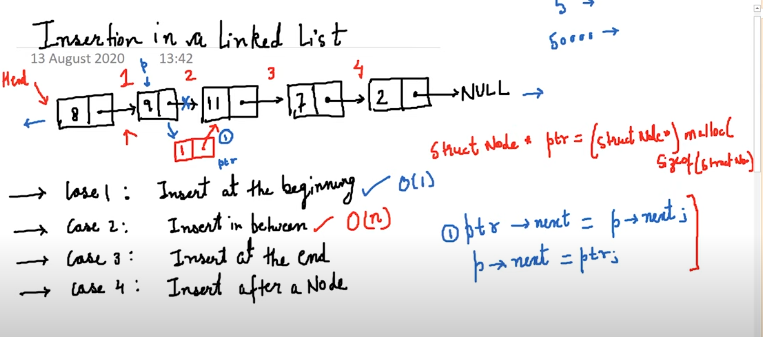 5 →
50000 →
Insertion in a Linked List
13 August 2020 13:42
Head p 1 2 3 4
8 9 11 7 2 → NULL →
1 ① ptr
Struct Node * ptr = (struct Node*) malloc(
sizeof(struct No)
→ Case 1 : Insert at the beginning ✓ O(1)
→ Case 2 : Insert in between ✓ O(n)
→ Case 3 : Insert at the end
→ Case 4 : Insert after a Node
① ptr → next = p → next;
p → next = ptr;